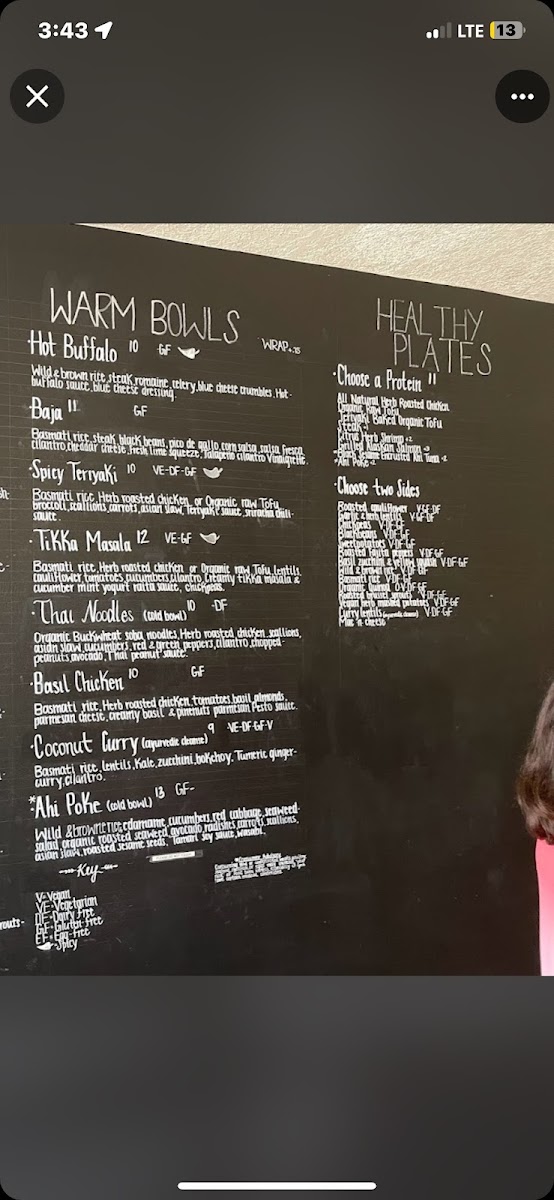 3:43
LTE
13
WARM BOWLS
Hot Buffalo 10 GF
WRAP +.75
Wild & brown rice, steak, romaine, celery, blue cheese crumbles. Hot-
buffalo sauce, blue cheese dressing.
Baja 11 GF
Basmati rice, steak, black beans, pico de gallo, corn salsa, salsa fresca,
cilantro, cheddar cheese, fresh lime squeeze, Jalapeno cilantro Vinaigrette.
Spicy Terryaki 10 VE-DF-GF
Basmati rice, Herb roasted chicken or Organic raw Tofu,
broccoli, scallions, carrots, asian slaw, Terryaki sauce, sriracha chili-
sauce.
TiKKa Masala 12 VE-GF
Basmati rice, Herb roasted chicken or Organic raw Tofu, lentils,
cauliflower, tomatoes, cucumbers, cilantro, Creamy tikka masala &
cucumber mint yogurt raita sauce, chickpeas.
Thai Noodles (cold bowl) 10 -DF
Organic Buckwheat soba noodles, Herb roasted chicken, scallions,
asian slaw, cucumbers, red & green peppers, cilantro, chopped-
peanuts, avocado, Thai peanut sauce.
Basil Chicken 10 GF
Basmati rice, Herb roasted chicken, tomatoes, basil, almonds,
parmesan cheese, creamy basil & pinenuts parmesan Pesto sauce.
Coconut Curry (ayurvedic cleanse) 9 VE-DF-GF-V
Basmati rice, lentils, Kale, zucchini, bokchoy. Tumeric ginger-
curry, cilantro.
*Ahi Poke (cold bowl) 13 GF-
Wild & brown rice, edamame, cucumbers, red cabbage, seaweed-
salad, organic roasted seaweed, avocado, radishes, carrots, scallions,
asian slaw, roasted sesame seeds, Tamari soy sauce, wasabi.
Key
V-Vegan
VE-Vegetarian
DF-Dairy Free
GF-Gluten-Free
EF-Egg-Free
-Spicy
HEALTHY
PLATES
Choose a Protein 11
All Natural Herb Roasted Chicken
Organic Raw Tofu
Teriyaki Baked Organic Tofu
Steak
Citrus Herb Shrimp +2
Grilled Alaskan Salmon +3
Black Sesame Encrusted Ahi Tuna +2
Ahi Poke
Choose two Sides
Roasted cauliflower V-GF-DF
Chickpeas
Blackbeans
Sweet potatoes
Roasted Fajita peppers V-DF-GF
Basil zucchini & yellow squash V-DF-GF
Wild & brown rice
Basmati rice
Organic Quinoa
Roasted brussel sprouts V-DF-GF
Vegan herb mashed potatoes V-DF-GF
Curry lentils (ayurvedic cleanse) V-DF-GF
Mac n cheese